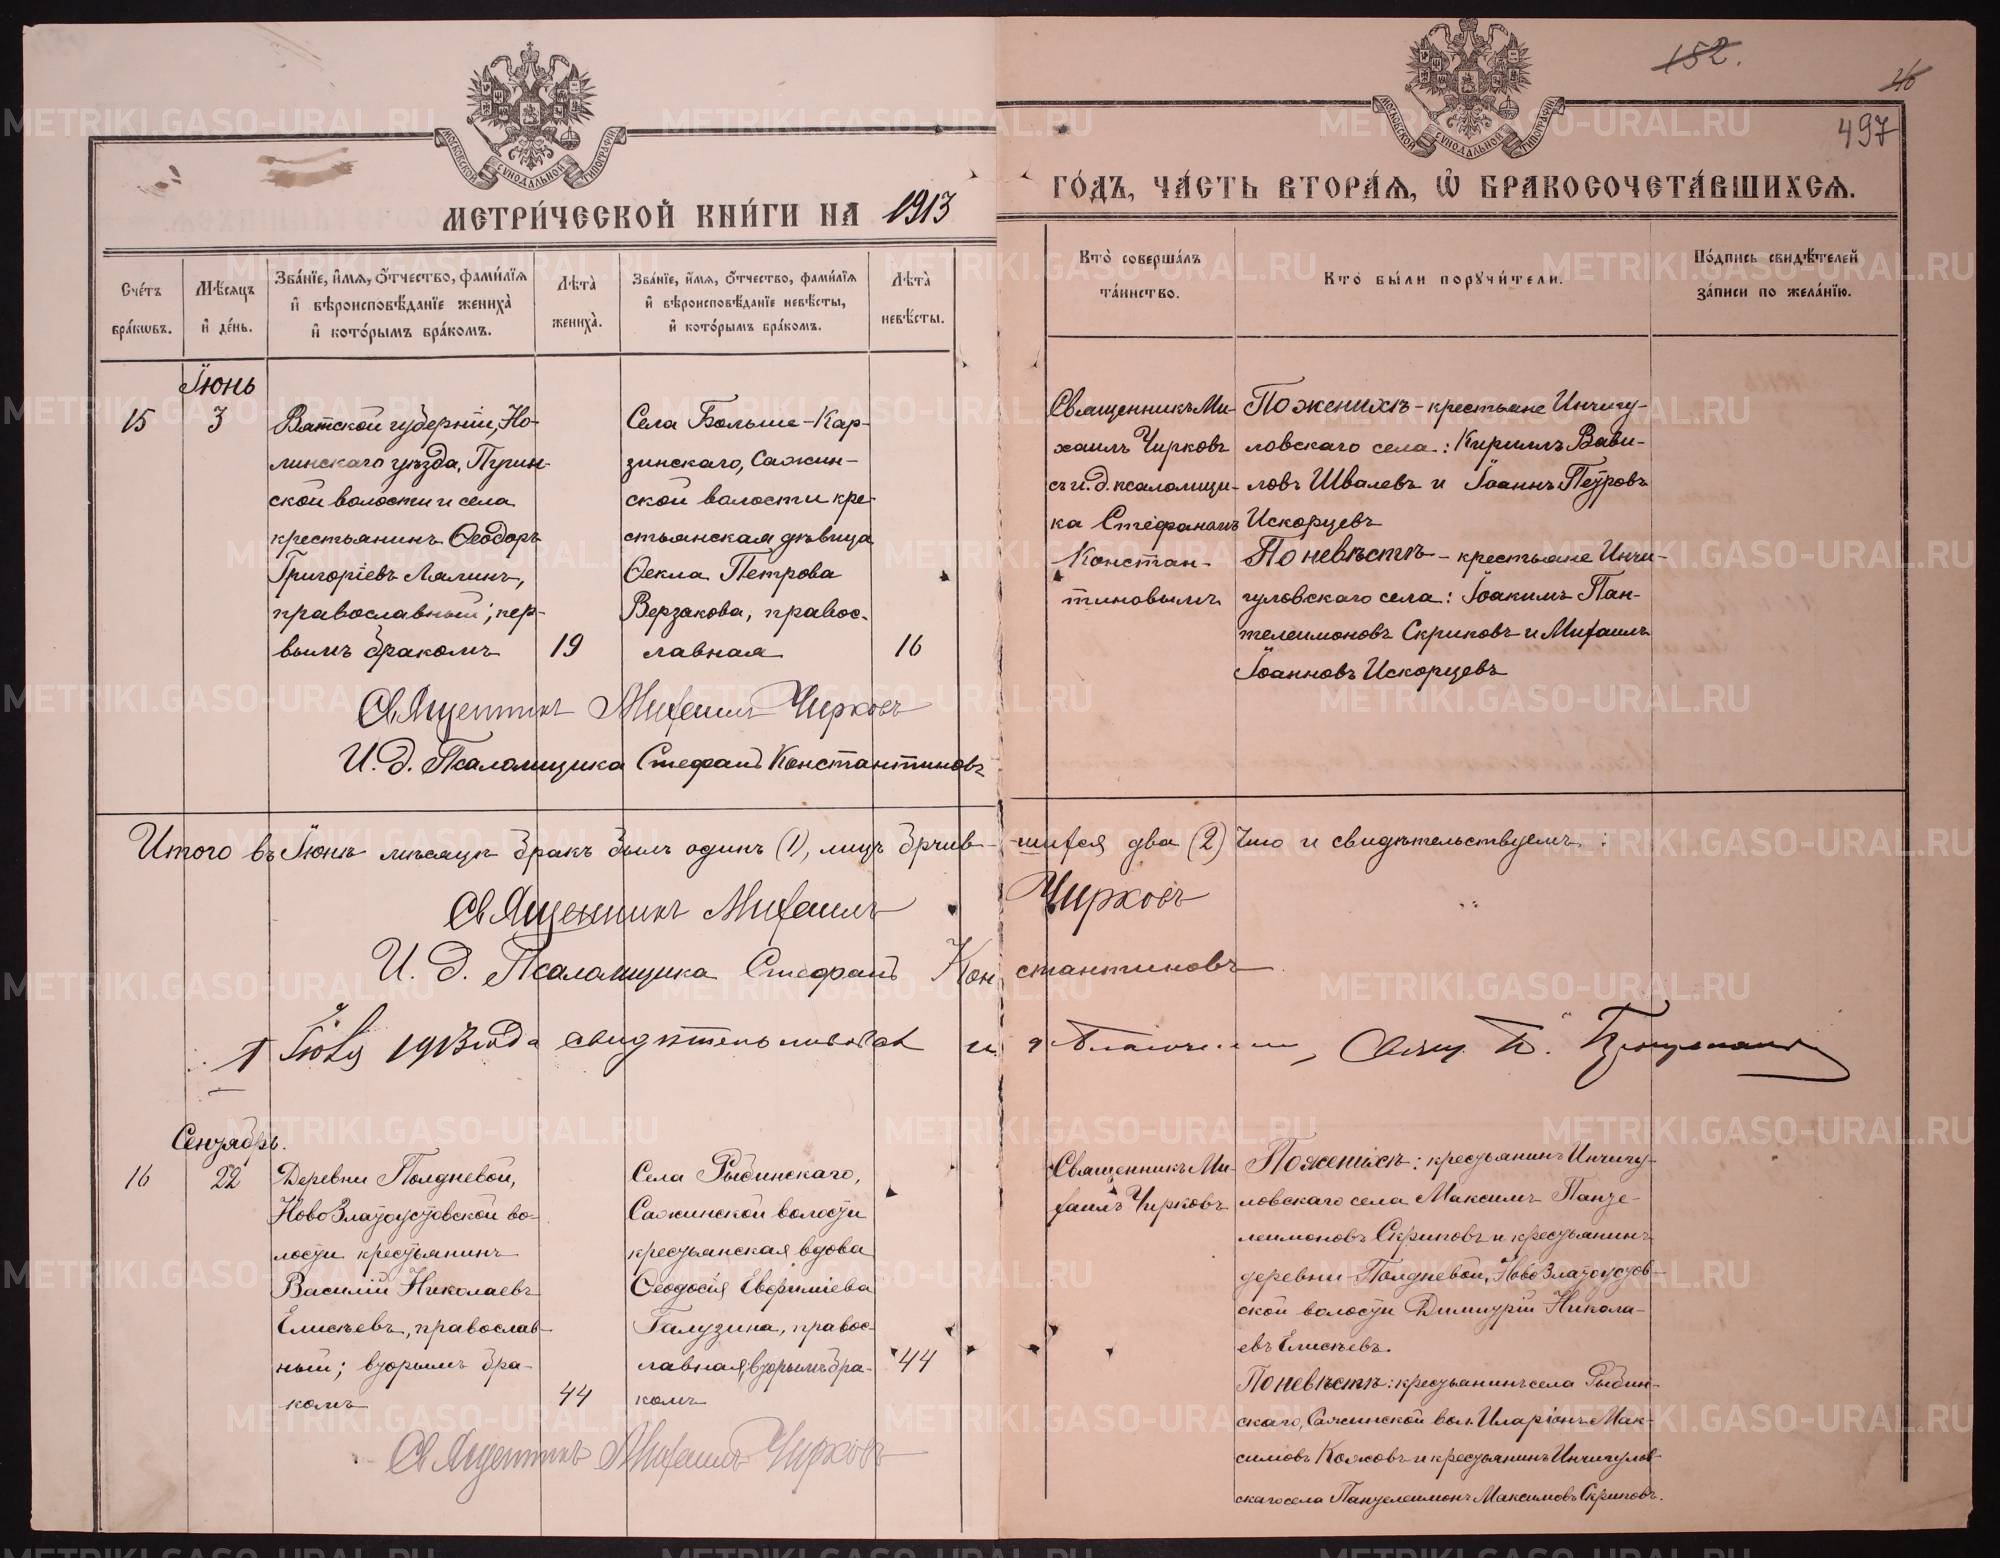 152.
26
497
МОСКОВСКОЙ СѴНОДАЛЬНОЙ ТИПОГРАФІИ
МОСКОВСКОЙ СѴНОДАЛЬНОЙ ТИПОГРАФІИ
МЕТРИ́ЧЕСКОЙ КНИ́ГИ НА 1913 ГО́ДЪ, ЧА́СТЬ ВТОРА́Ѧ, Ѡ҆ БРАКОСОЧЕТА́ВШИХСѦ.
Сче́тъ бра́кѡвъ.
Мѣ́сѧцъ и҆ де́нь.
Зва́нїе, и҆́мѧ, ѻ҆́тчество, фами́лїѧ и҆ вѣроисповѣ́данїе жениха̀ и҆ кото́рымъ бра́комъ.
Лѣ́та̀ жениха̀.
Зва́нїе, и҆́мѧ, ѻ҆́тчество, фами́лїѧ и҆ вѣроисповѣ́данїе невѣ́сты, и҆ кото́рымъ бра́комъ.
Лѣ́та̀ невѣ́сты.
Кто̀ соверша́лъ та́инство.
Кто̀ бы́ли порꙋчи́тели.
По́дпись свидѣ́телей за́писи по жела́нїю.
Іюнь
15
3
Вятской губерніи, Но-
линскаго уѣзда, Пугин-
ской волости и села
крестьянинъ Ѳеодоръ
Григоріевъ Лялинъ,
православный; пер-
вымъ бракомъ
19
Села Больше-Кар-
зинскаго, Сажин-
ской волости кре-
стьянская дѣвица
Ѳекла Петрова
Верзакова, правос-
лавная
16
Священникъ Ми-
хаилъ Чирковъ
съ и. д. псаломщи-
ка Стефаномъ
Констан-
тиновымъ
По женихѣ - крестьяне Инчигу-
ловскаго села: Кириллъ Вави-
ловъ Швалевъ и Іоаннъ Петровъ
Искорцевъ
По невѣстѣ - крестьяне Инчи-
гуловскаго села: Іоакимъ Пан-
телеимоновъ Скриповъ и Михаилъ
Іоанновъ Искорцевъ
Священникъ Михаилъ Чирковъ
И. д. Псаломщика Стефанъ Константиновъ
Итого въ Іюнѣ мѣсяцѣ бракъ былъ одинъ (1), лицъ брачив-шихся два (2) Что и свидѣтельствуемъ:
Священникъ Михаилъ Чирковъ
И. д. Псаломщика Стефанъ Константиновъ
1913 года
Сентябрь.
16
22
Деревни Полдневой,
Ново Златоустовской во-
лости крестьянинъ
Василій Николаевъ
Елисѣевъ, православ-
ный; вторымъ бра-
комъ
44
Села Рыбинскаго,
Сажинской волости
крестьянская вдова
Ѳеодосія Евфиміева
Галузина, правос-
лавная, вторымъ бра-
комъ
44
Священникъ Ми-
хаилъ Чирковъ
По женихѣ: крестьянинъ Инчигу-
ловскаго села Максимъ Панте-
леимоновъ Скриповъ и крестьянинъ
деревни Полдневой, Ново Златоустов-
ской волости Димитрій Никола-
евъ Елисѣевъ.
По невѣстѣ: крестьянинъ села Рыбин-
скаго, Сажинской вол. Иларіонъ Мак-
симовъ Кожовъ и крестьянинъ Инчигулов-
скаго села Пантелеимонъ Максимовъ Скриповъ.
Священникъ Михаилъ Чирковъ
METRIKI.GASO-URAL.RU